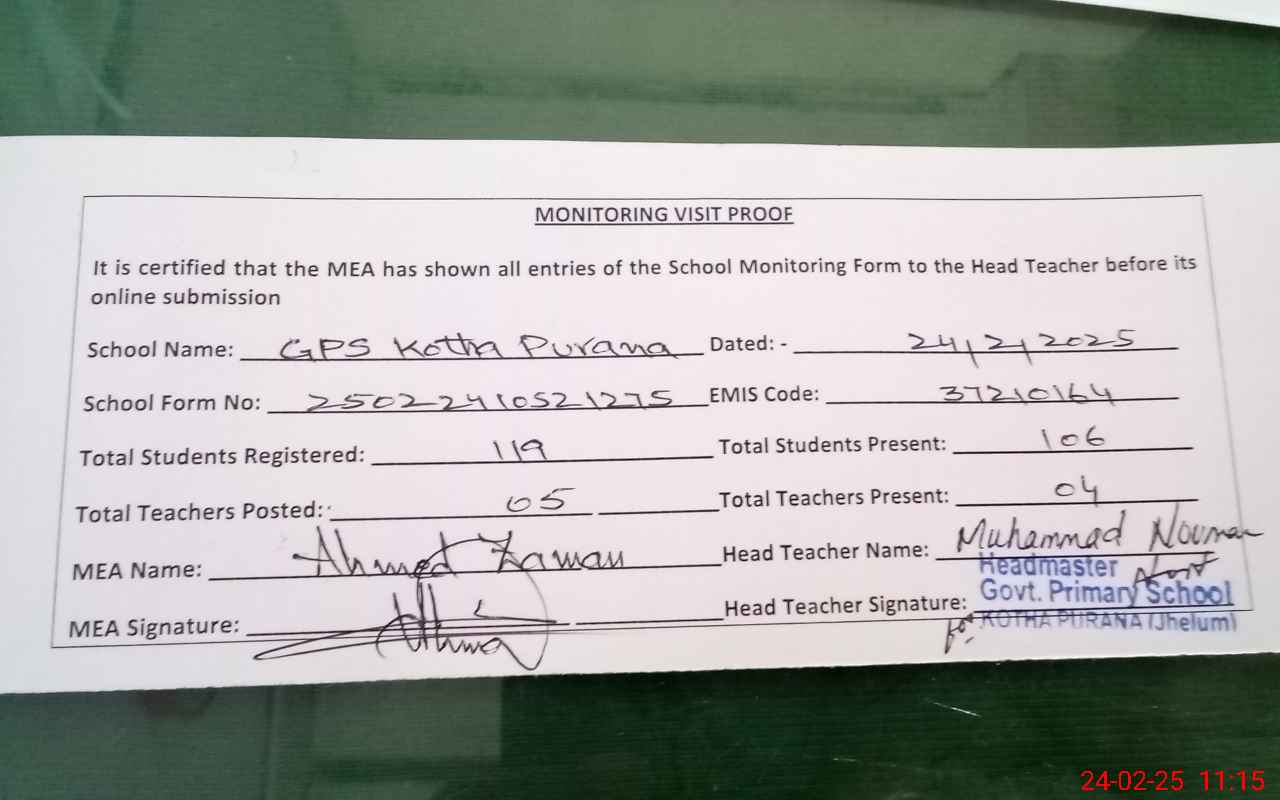 MONITORING VISIT PROOF
It is certified that the MEA has shown all entries of the School Monitoring Form to the Head Teacher before its
online submission
School Name: GPS Kotha Purana Dated: - 24/2/2025
School Form No: 25022410521275 EMIS Code: 37210164
Total Students Registered: 119 Total Students Present: 106
Total Teachers Posted: 05 Total Teachers Present: 04
MEA Name: Ahmed Zaman Head Teacher Name: Muhammad Nouman
MEA Signature: Head Teacher Signature:
Headmaster
Govt. Primary School
for KOTHA PURANA (Jhelum)
24-02-25 11:15